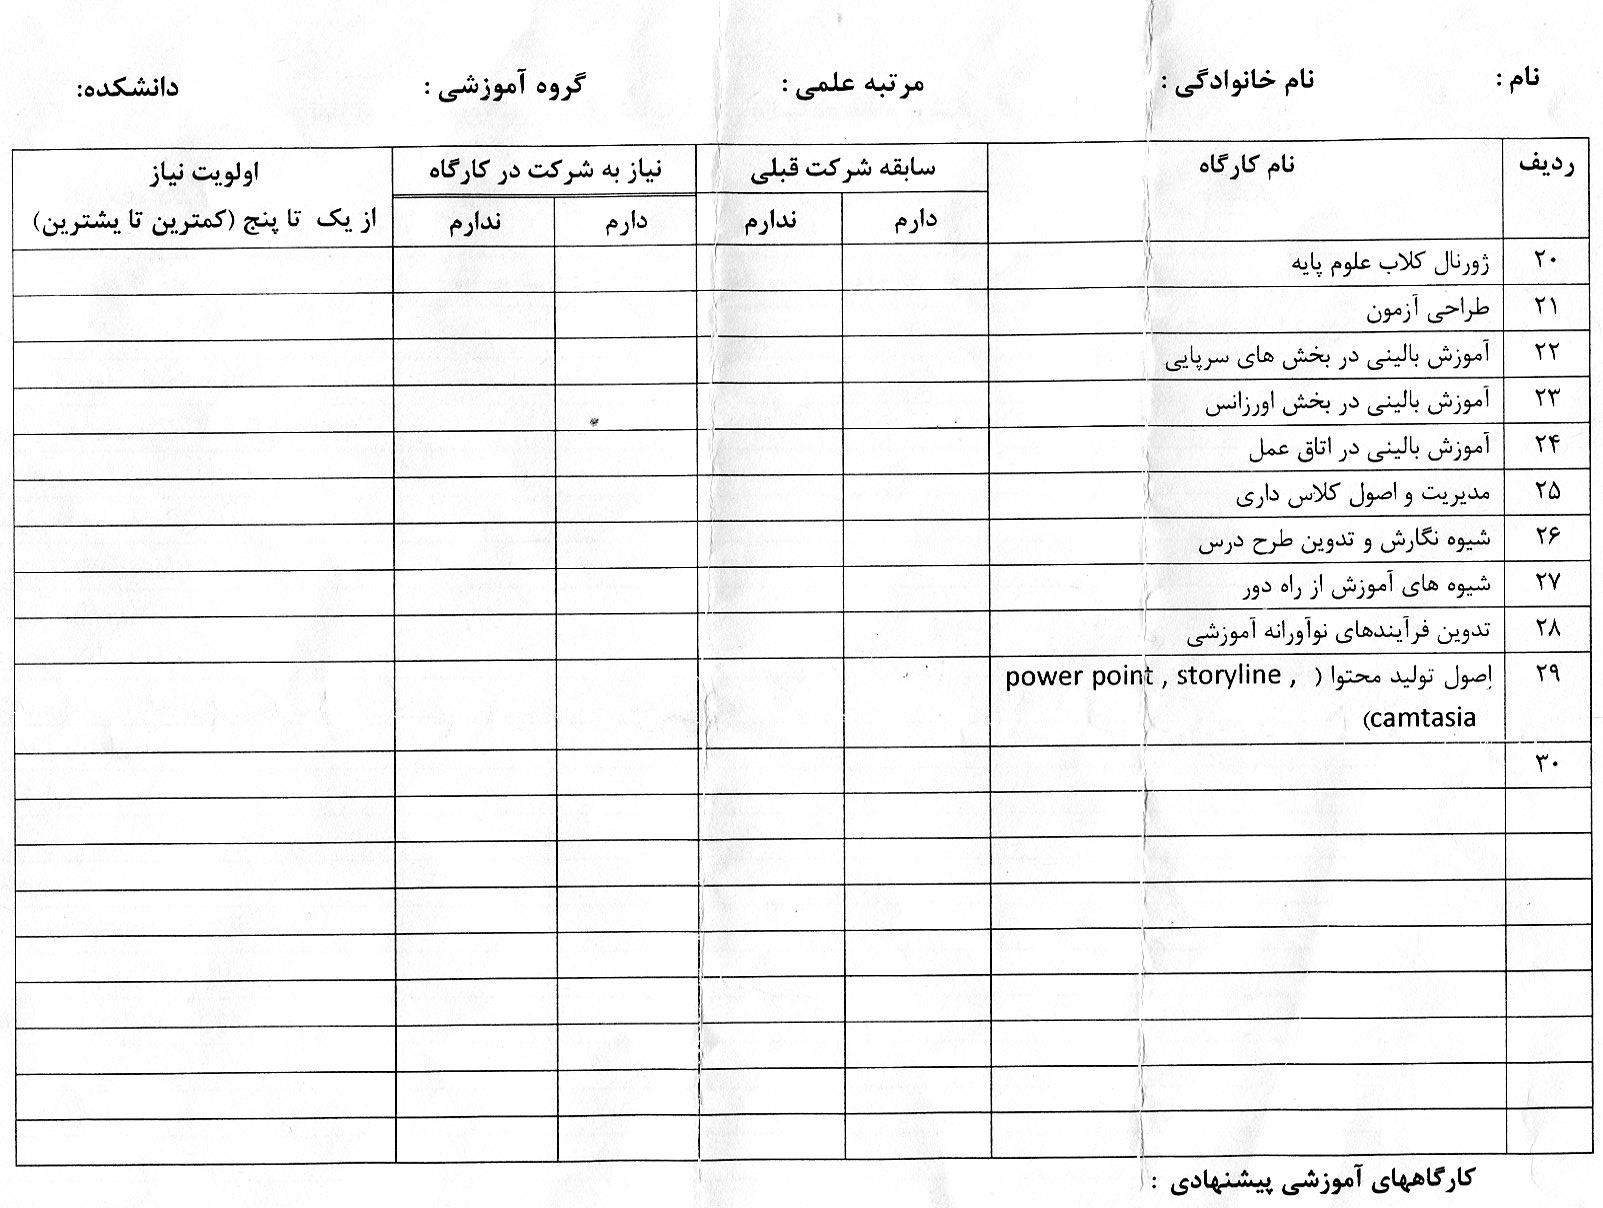 نام : نام خانوادگی : مرتبه علمی : گروه آموزشی : دانشکده:
ردیف نام کارگاه سابقه شرکت قبلی نیاز به شرکت در کارگاه اولویت نیاز
دارم ندارم دارم ندارم از یک تا پنج (کمترین تا یشترین)
۲۰ ژورنال کلاب علوم پایه
۲۱ طراحی آزمون
۲۲ آموزش بالینی در بخش های سرپایی
۲۳ آموزش بالینی در بخش اورژانس
۲۴ آموزش بالینی در اتاق عمل
۲۵ مدیریت و اصول کلاس داری
۲۶ شیوه نگارش و تدوین طرح درس
۲۷ شیوه های آموزش از راه دور
۲۸ تدوین فرآیندهای نوآورانه آموزشی
۲۹ اصول تولید محتوا ( power point , storyline ,
camtasia)
۳۰
کارگاههای آموزشی پیشنهادی :